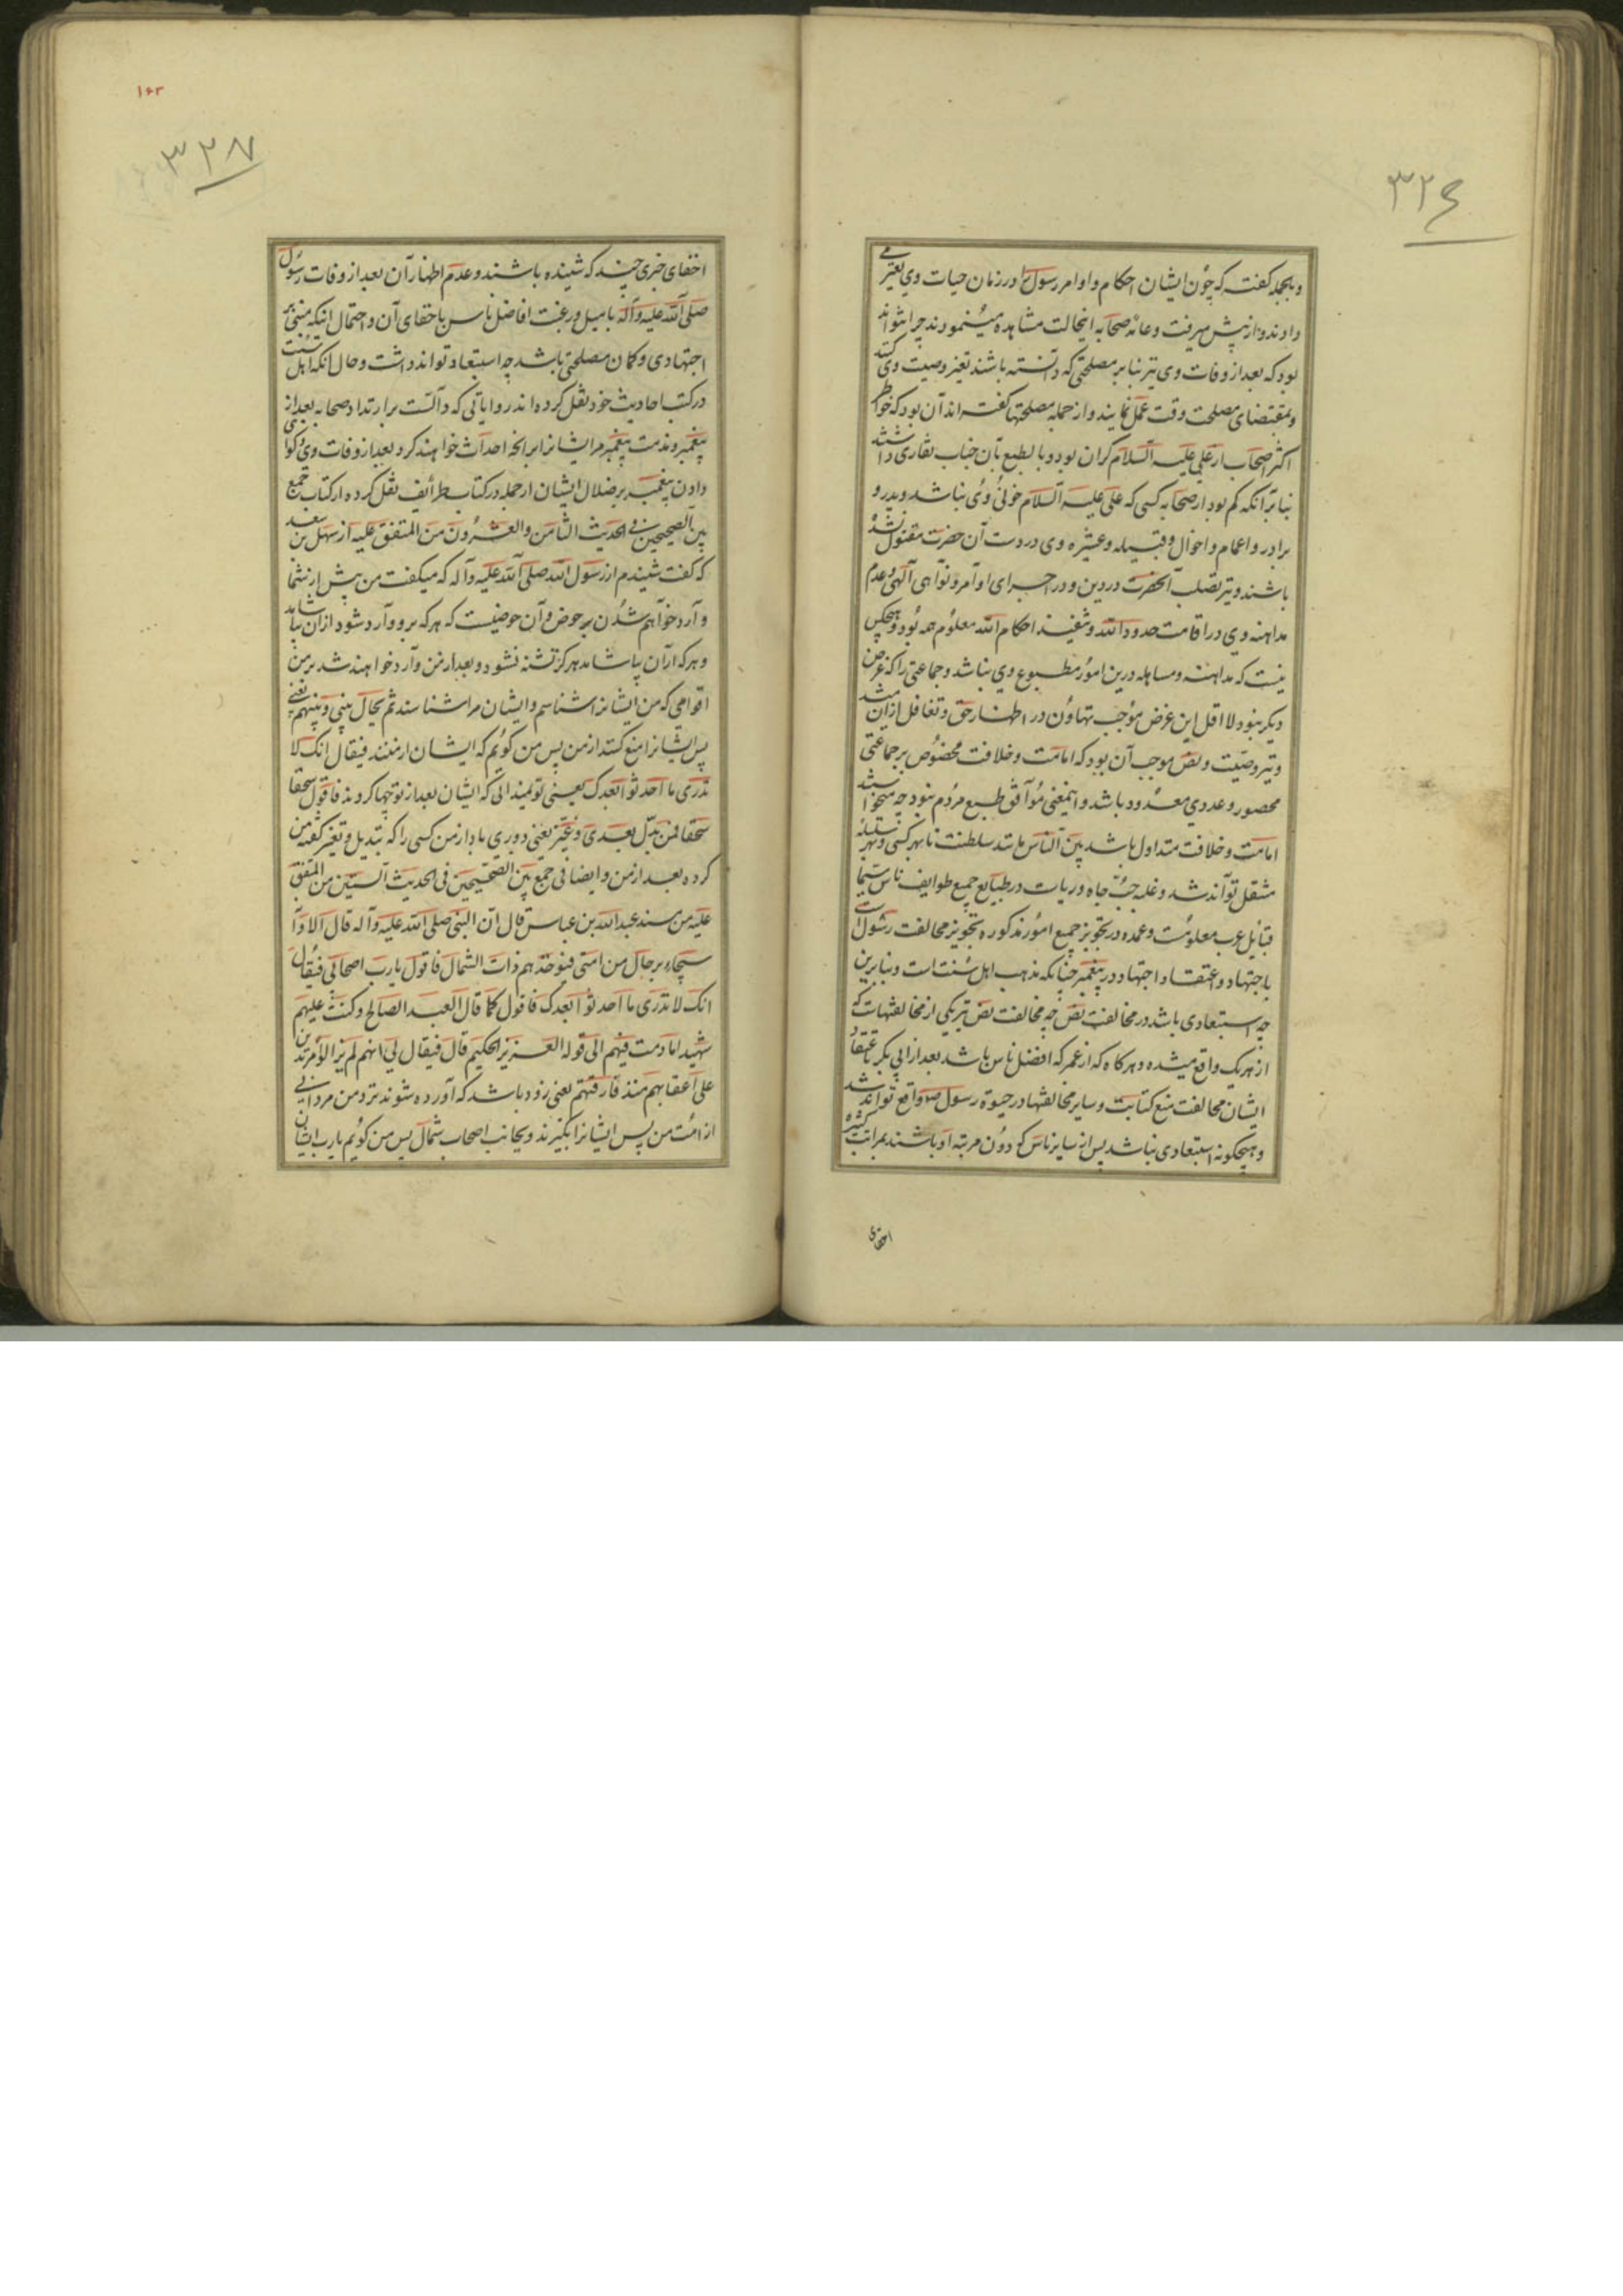 ۳۲۶
وبالجمله گفته که چون ایشان احکام و اوامر رسول را در زمان حیات وی تغیر می
دادند و از پیش میرفت و عامهٔ صحابه اینحالت مشاهده مینمودند چرا نتواند
بود که بعد از وفات وی نیز بنا بر مصلحتی که دانسته باشند تغیر وصیت وی کنند
و بمقتضای مصلحت وقت عمل نمایند و از جمله مصلحتها گفته اند آن بود که خواطر
اکثر صحابه از علی علیه السلام گران بود و بالطبع بآن جناب نقاری داشتند
بنا بر آنکه کم بود از صحابه کسی که علی علیه السلام خونی وی نباشد و پدر و
برادر و اعمام و اخوال و قبیله و عشیره وی در دست آن حضرت مقتول نشده
باشند و نیز تصلب آنحضرت در دین و در اجرای اوامر و نواهی الهی و عدم
مداهنه وی در اقامت حدود الله و تنفیذ احکام الله معلوم همه بود و هیچکس
نیست که مداهنه و مساهله درین امور مطبوع وی نباشد و جماعتی را که غرض
دیگر نبود لا اقل این غرض موجب تهاون در اظهار حق و تغافل از آن میشد
و نیز وصیت و نص موجب آن بود که امامت و خلافت مخصوص بر جماعتی
محصور و عددی معدود باشد و اینمعنی موافق طبع مردم نبود چه میخواستند
امامت و خلافت متداول باشد بین الناس مانند سلطنت تا بهر کسی و بهر
منتقل تواند شد و غلبه حب جاه و ریاست در طبایع جمیع طوایف ناس سیما
قبایل عرب معلومست و عمده در تجویز جمیع امور مذکوره تجویز مخالفت رسول است
باجتهاد و اعتقاد اجتهاد در پیغمبر چنانکه مذهب اهل سنت است و بنابرین
چه استبعادی باشد در مخالفت نص چه مخالفت نص نیز یکی از مخالفتهاست که
از هریک واقع میشده و هرگاه که از عمر که افضل ناس باشد بعد از ابی بکر باعتقاد
ایشان مخالفت منع کتابت و سایر مخالفتها در حیوة رسول ص واقع تواند شد
و هیچگونه استبعادی نباشد پس از سایر ناس که دون مرتبه او باشند بمراتب کثیره
اخفای
۱۶۳
۳۲۷
اخفای خبری چند که شنیده باشند و عدم اظهار آن بعد از وفات رسول
صلی الله علیه وآله با میل و رغبت افاضل ناس باخفای آن و احتمال اینکه مبنی بر
اجتهادی و گمان مصلحتی باشد چه استبعاد تواند داشت و حال آنکه اهل سنت
در کتب احادیث خود نقل کرده اند روایاتی که دالست بر ارتداد صحابه بعد از
پیغمبر و مذمت پیغمبر مر ایشانرا بر آنچه احداث خواهند کرد بعد از وفات وی و گواهی
دادن پیغمبر بر ضلال ایشان از جمله در کتاب طرائف نقل کرده از کتاب جمع
بین الصحیحین فی الحدیث الثامن والعشرون من المتفق علیه از سهل بن سعد
که گفت شنیدم از رسول الله صلی الله علیه وآله که میگفت من پیش از شما
وارد خواهم شدن بر حوض و آن حوضیست که هر که برو وارد شود از آن بیاشامد
و هر که از آن بیاشامد هرگز تشنه نشود و بعد از من وارد خواهند شد بر من
اقوامی که من ایشانرا شناسم و ایشان مرا شناسند ثم یحال بینی و بینهم یعنی
پس ایشانرا منع کنند از من پس من گویم که ایشان از منند فیقال انک لا
تدری ما احدثوا بعدک یعنی تو نمیدانی که ایشان بعد از تو چها کردند فاقول سحقا
سحقا لمن بدل بعدی و غیر یعنی دوری بادا از من کسی را که تبدیل و تغیر گفته من
کرده بعد از من و ایضا فی جمع بین الصحیحین فی الحدیث الستین من المتفق
علیه من مسند عبد الله بن عباس قال ان النبی صلی الله علیه وآله قال الا وانه
سیجاء برجال من امتی فیؤخذ بهم ذات الشمال فاقول یا رب اصحابی فیقال
انک لا تدری ما احدثوا بعدک فاقول کما قال العبد الصالح وکنت علیهم
شهیدا ما دمت فیهم الی قوله العزیز الحکیم قال فیقال لی انهم لم یزالوا مرتدین
علی اعقابهم منذ فارقتهم یعنی زود باشد که آورده شوند نزد من مردانی
از امت من پس ایشانرا بگیرند و بجانب اصحاب شمال پس من گویم یا رب ایشان